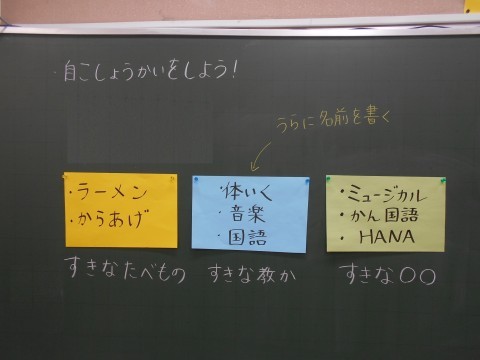 ・自こしょうかいをしよう！
うらに名前を書く
・ラーメン
・からあげ
・体いく
・音楽
・国語
・ミュージカル
・かん国語
・HANA
すきなたべもの
すきな教か
すきな〇〇